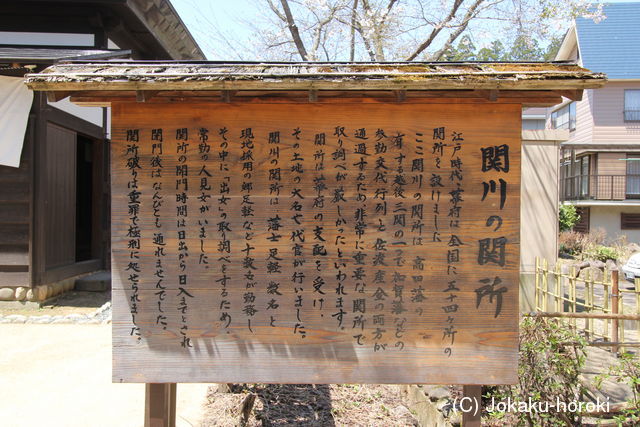 関川の関所
江戸時代、幕府は全国に五十四ヶ所の
関所を設けました
ここ関川の関所は、高田藩の
有する越後三関の一で、加賀藩などの
参勤交代行列と佐渡産金の両方が
通過するため非常に重要な関所で
取り調べが厳しかったといわれます。
関所は幕府の支配を受け、
その土地の大名や代官が行いました。
関川の関所は、藩士足軽数名と
現地採用の郷足軽など十数名が勤務し
その中に「出女」の取調べをするため、
常勤の人見女がいました。
関所の開門時間は日出から日入までとされ
閉門後はなんぴとも通れませんでした。
関所破りは重罪で極刑に処せられました。
(C) Jokaku-horoki